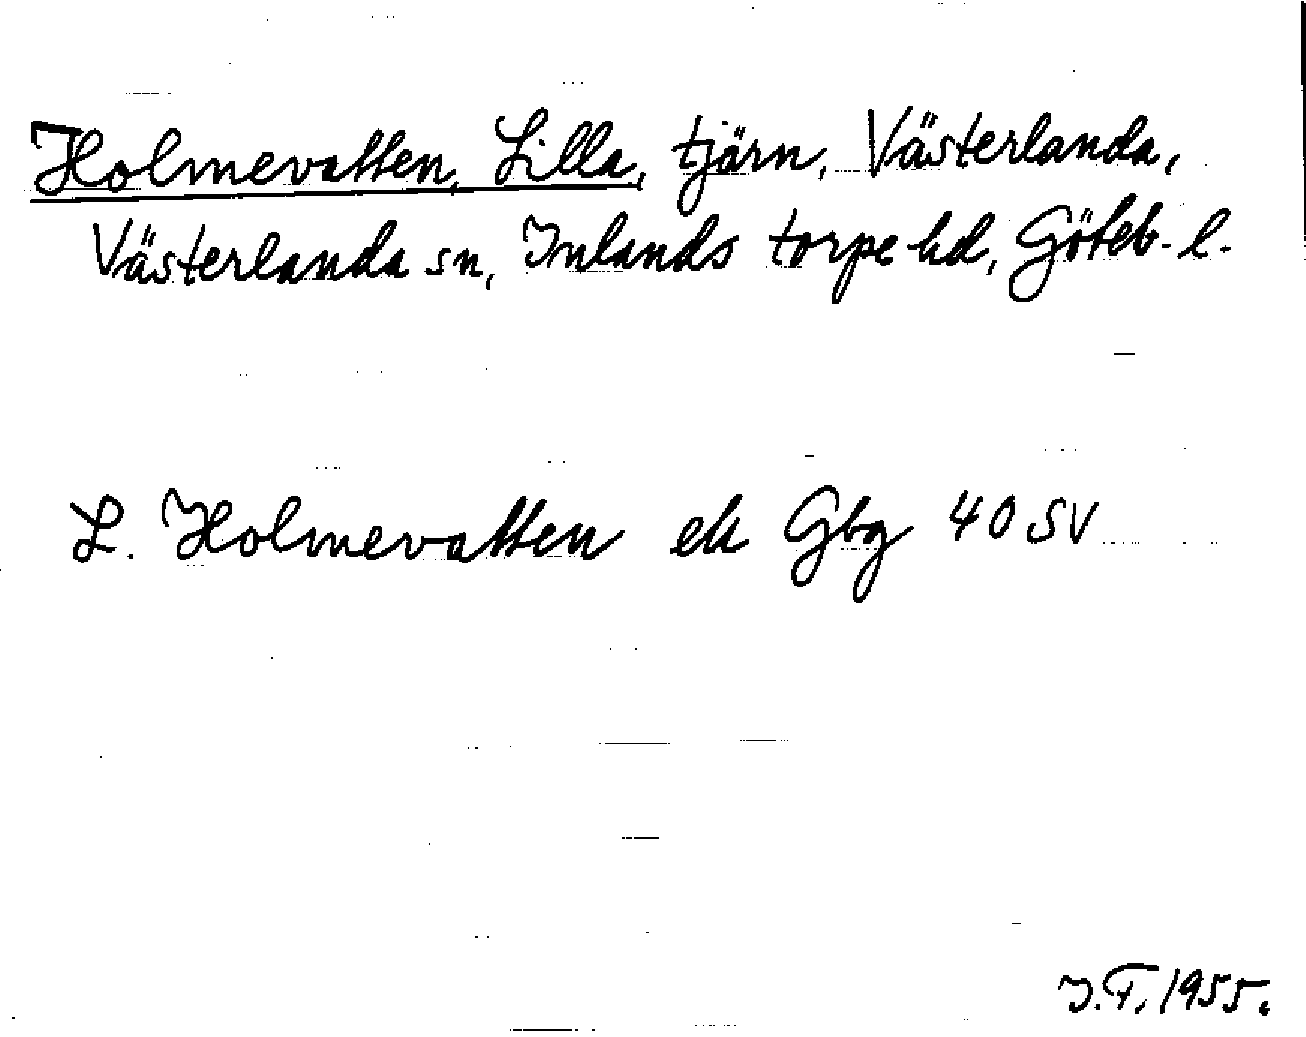 Holmevatten, Lilla, tjärn, Västerlanda,
Västerlanda sn, Inlands torpe hd, Göteb. l.
L. Holmevatten ek Gbg 40 SV
I.F. 1955.